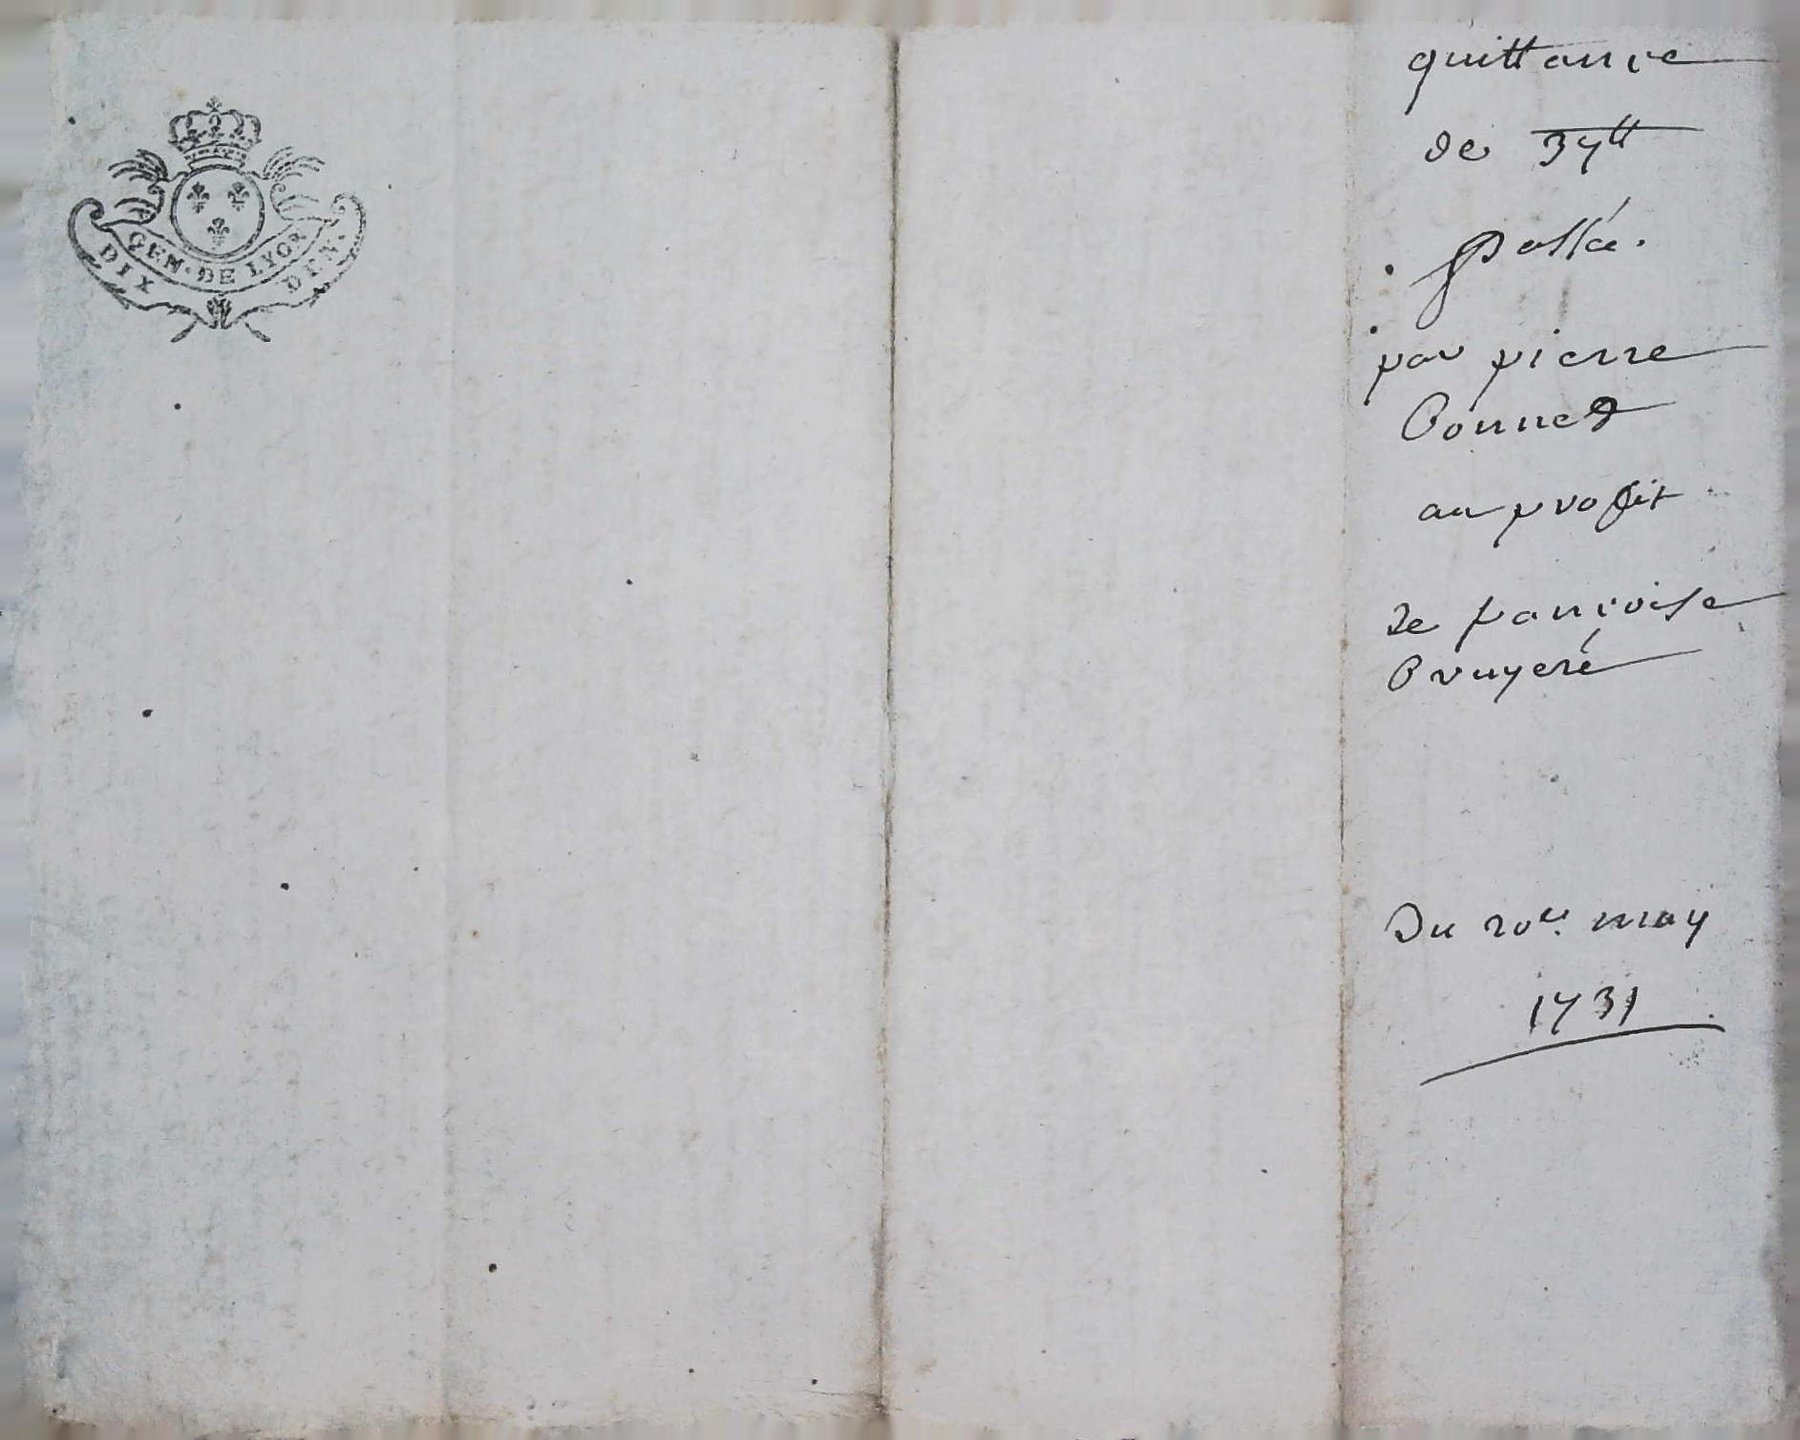 GEN · DE LYON
DIX DEN ·
quittance
de 37tt
Passée.
par pierre
Bonned
au profit
de françoise
Bruyere
Du 20e. may
1731